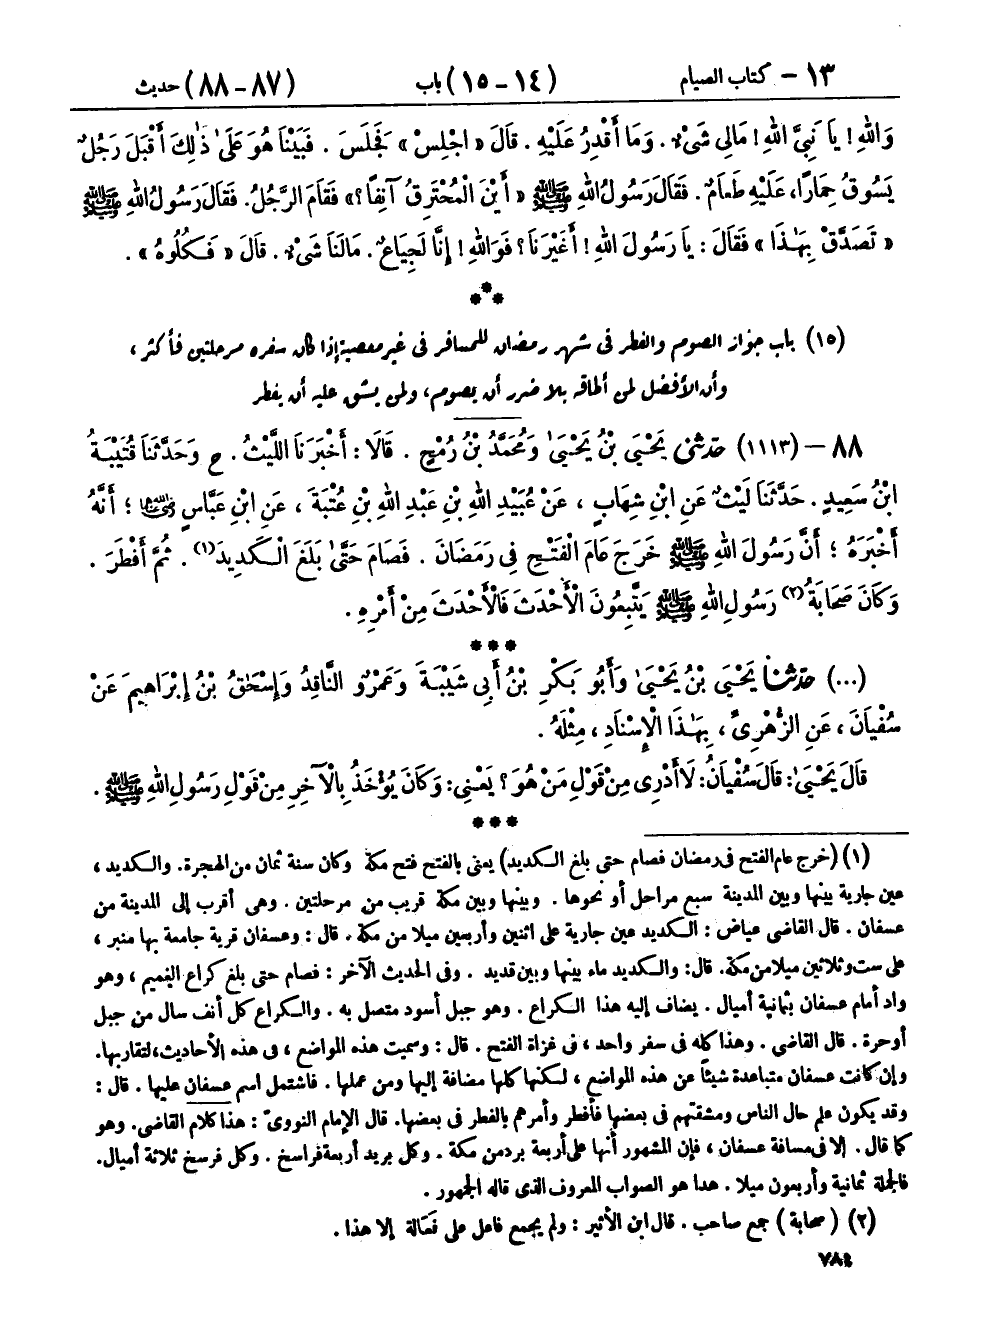 ١٣ – كتاب الصيام (١٤ – ١٥) باب (٨٧ – ٨٨) حديث
وَاللهِ! يَا نَبِيَّ اللهِ! مَالِي شَيْءٌ. وَمَا أَقْدِرُ عَلَيْهِ. قَالَ « اجْلِسْ » فَجَلَسَ. فَبَيْنَا هُوَ عَلَىٰ ذٰلِكَ أَقْبَلَ رَجُلٌ
يَسُوقُ حِمَارًا، عَلَيْهِ طَعَامٌ. فَقَالَ رَسُولُ اللهِ ﷺ « أَيْنَ الْمُحْتَرِقُ آنِفًا؟ » فَقَامَ الرَّجُلُ. فَقَالَ رَسُولُ اللهِ ﷺ
« تَصَدَّقْ بِهَـٰذَا » فَقَالَ : يَا رَسُولَ اللهِ! أَغَيْرَنَا؟ فَوَاللهِ! إِنَّا لَجِيَاعٌ. مَالَنَا شَيْءٌ. قَالَ « فَكُلُوهُ ».
***
(١٥) باب جواز الصوم والفطر فى شهر رمضان للمسافر فى غير معصية إذا كان سفره مرحلتين فأكثر،
وأن الأفضل لمن أطاقه بلا ضرر أن يصوم، ولمن يشق عليه أن يفطر
٨٨ – (١١١٣) حَدَّثَنِي يَحْيَىٰ بْنُ يَحْيَىٰ وَمُحَمَّدُ بْنُ رُمْحٍ. قَالَا : أَخْبَرَنَا اللَّيْثُ. ح وَحَدَّثَنَا قُتَيْبَةُ
ابْنُ سَعِيدٍ. حَدَّثَنَا لَيْثٌ عَنِ ابْنِ شِهَابٍ ، عَنْ عُبَيْدِ اللهِ بْنِ عَبْدِ اللهِ بْنِ عُتْبَةَ ، عَنِ ابْنِ عَبَّاسٍ رضي الله عنهما ؛ أَنَّهُ
أَخْبَرَهُ ؛ أَنَّ رَسُولَ اللهِ ﷺ خَرَجَ عَامَ الْفَتْحِ فِى رَمَضَانَ. فَصَامَ حَتَّىٰ بَلَغَ الْكَدِيدَ(١). ثُمَّ أَفْطَرَ.
وَكَانَ صَحَابَةُ(٢) رَسُولِ اللهِ ﷺ يَتَّبِعُونَ الْأَحْدَثَ فَالْأَحْدَثَ مِنْ أَمْرِهِ.
***
(...) حَدَّثَنَا يَحْيَىٰ بْنُ يَحْيَىٰ وَأَبُو بَكْرِ بْنُ أَبِى شَيْبَةَ وَعَمْرٌو النَّاقِدُ وَإِسْحَـٰقُ بْنُ إِبْرَاهِيمَ عَنْ
سُفْيَانَ ، عَنِ الزُّهْرِىِّ ، بِهَـٰذَا الْإِسْنَادِ ، مِثْلَهُ.
قَالَ يَحْيَىٰ: قَالَ سُفْيَانُ: لَا أَدْرِى مِنْ قَوْلِ مَنْ هُوَ؟ يَعْنِى: وَكَانَ يُؤْخَذُ بِالْآخِرِ مِنْ قَوْلِ رَسُولِ اللهِ ﷺ.
***
(١) (خرج عام الفتح فى رمضان فصام حتى بلغ الكديد) يعنى بالفتح فتح مكة وكان سنة ثمان من الهجرة. والكديد ،
عين جارية بينها وبين المدينة سبع مراحل أو نحوها. وبينها وبين مكة قريب من مرحلتين. وهى أقرب إلى المدينة من
عسفان. قال القاضى عياض : الكديد عين جارية على اثنين وأربعين ميلا من مكة. قال : وعسفان قرية جامعة بها منبر ،
على ست وثلاثين ميلا من مكة. قال: والكديد ماء بينها وبين قديد. وفى الحديث الآخر : فصام حتى بلغ كراع الغميم ، وهو
واد أمام عسفان بثمانية أميال. يضاف إليه هذا الكراع. وهو جبل أسود متصل به. والكراع كل أنف سال من جبل
أوحرة. قال القاضى. وهذا كله فى سفر واحد ، فى غزاة الفتح. قال : وسميت هذه المواضع ، فى هذه الأحاديث، لتقاربها.
وإن كانت عسفان متباعدة شيئاً عن هذه المواضع ، لكنها كلها مضافة إليها ومن عملها. فاشتمل اسم عسفان عليها. قال :
وقد يكون علم حال الناس ومشقتهم فى بعضها فأفطر وأمرهم بالفطر فى بعضها. قال الإمام النووىّ : هذا كلام القاضى. وهو
كما قال. إلا فى مسافة عسفان ، فإن المشهور أنها على أربعة برد من مكة. وكل بريد أربعة فراسخ. وكل فرسخ ثلاثة أميال.
فالجملة ثمانية وأربعون ميلا. هذا هو الصواب المعروف الذى قاله الجمهور.
(٢) (صحابة) جمع صاحب. قال ابن الأثير : ولم يجمع فاعل على فَعَالة إلا هذا.
٧٨٤